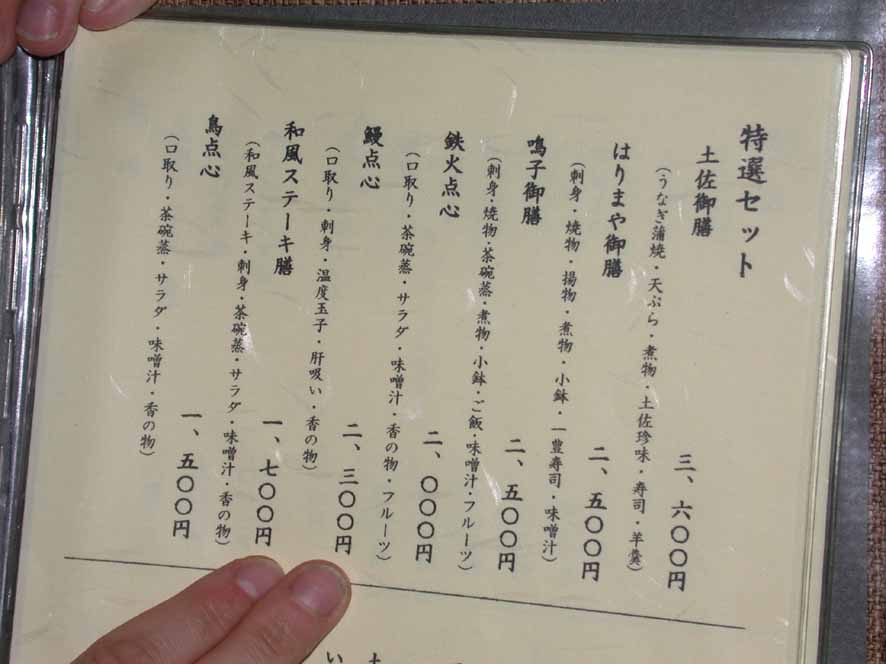 特選セット
土佐御膳
(うなぎ蒲焼・天ぷら・煮物・土佐珍味・寿司・羊羹)
三、六〇〇円
はりまや御膳
(刺身・焼物・揚物・煮物・小鉢・一豊寿司・味噌汁)
二、五〇〇円
鳴子御膳
(刺身・焼物・茶碗蒸・煮物・小鉢・ご飯・味噌汁・フルーツ)
二、五〇〇円
鉄火点心
(口取り・茶碗蒸・サラダ・味噌汁・香の物・フルーツ)
二、〇〇〇円
鰻点心
(口取り・刺身・温度玉子・肝吸い・香の物)
二、三〇〇円
和風ステーキ膳
(和風ステーキ・刺身・茶碗蒸・サラダ・味噌汁・香の物)
一、七〇〇円
鳥点心
(口取り・茶碗蒸・サラダ・味噌汁・香の物)
一、五〇〇円